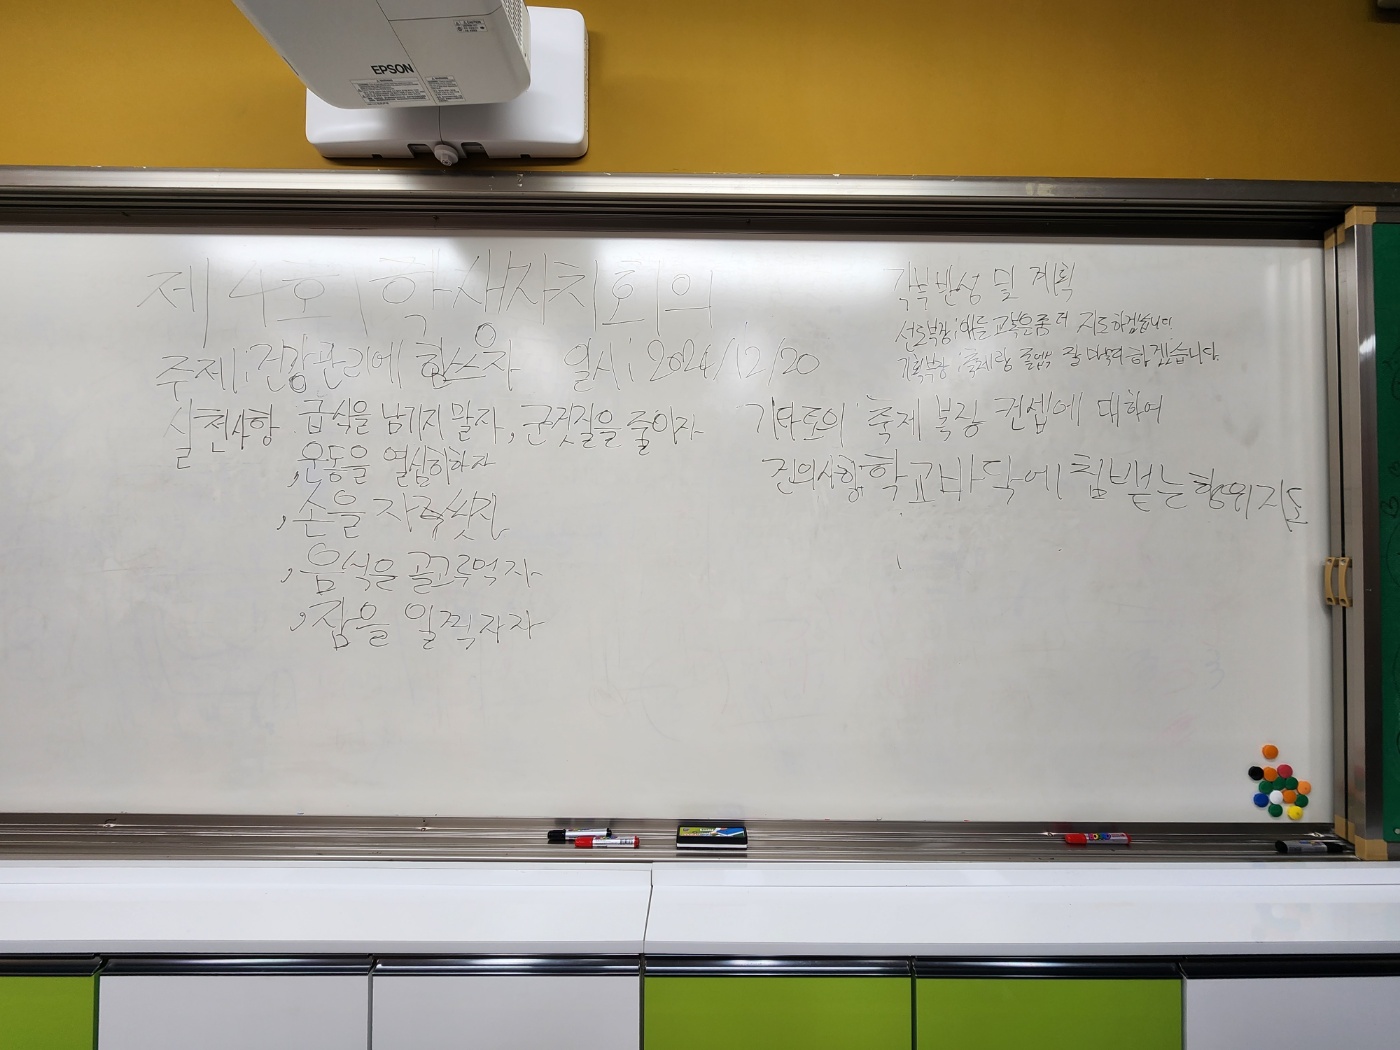 EPSON
제 4회 학생자치회의
주제: 건강관리에 힘쓰자 일시: 2024/12/20
실천사항 급식을 남기지 말자, 군것질을 줄이자
, 운동을 열심히하자
, 손을 자주씻자
, 음식을 골고루먹자
, 잠을 일찍자자
각부 반성 및 계획
선도부장: 애들 교복은좀 더 지도하겠습니다
기획부장: 축제랑 졸업 잘 하겠습니다.
기타토의 축제 복장 컨셉에 대하여
건의사항: 학교바닥에 침뱉는 행위 지도